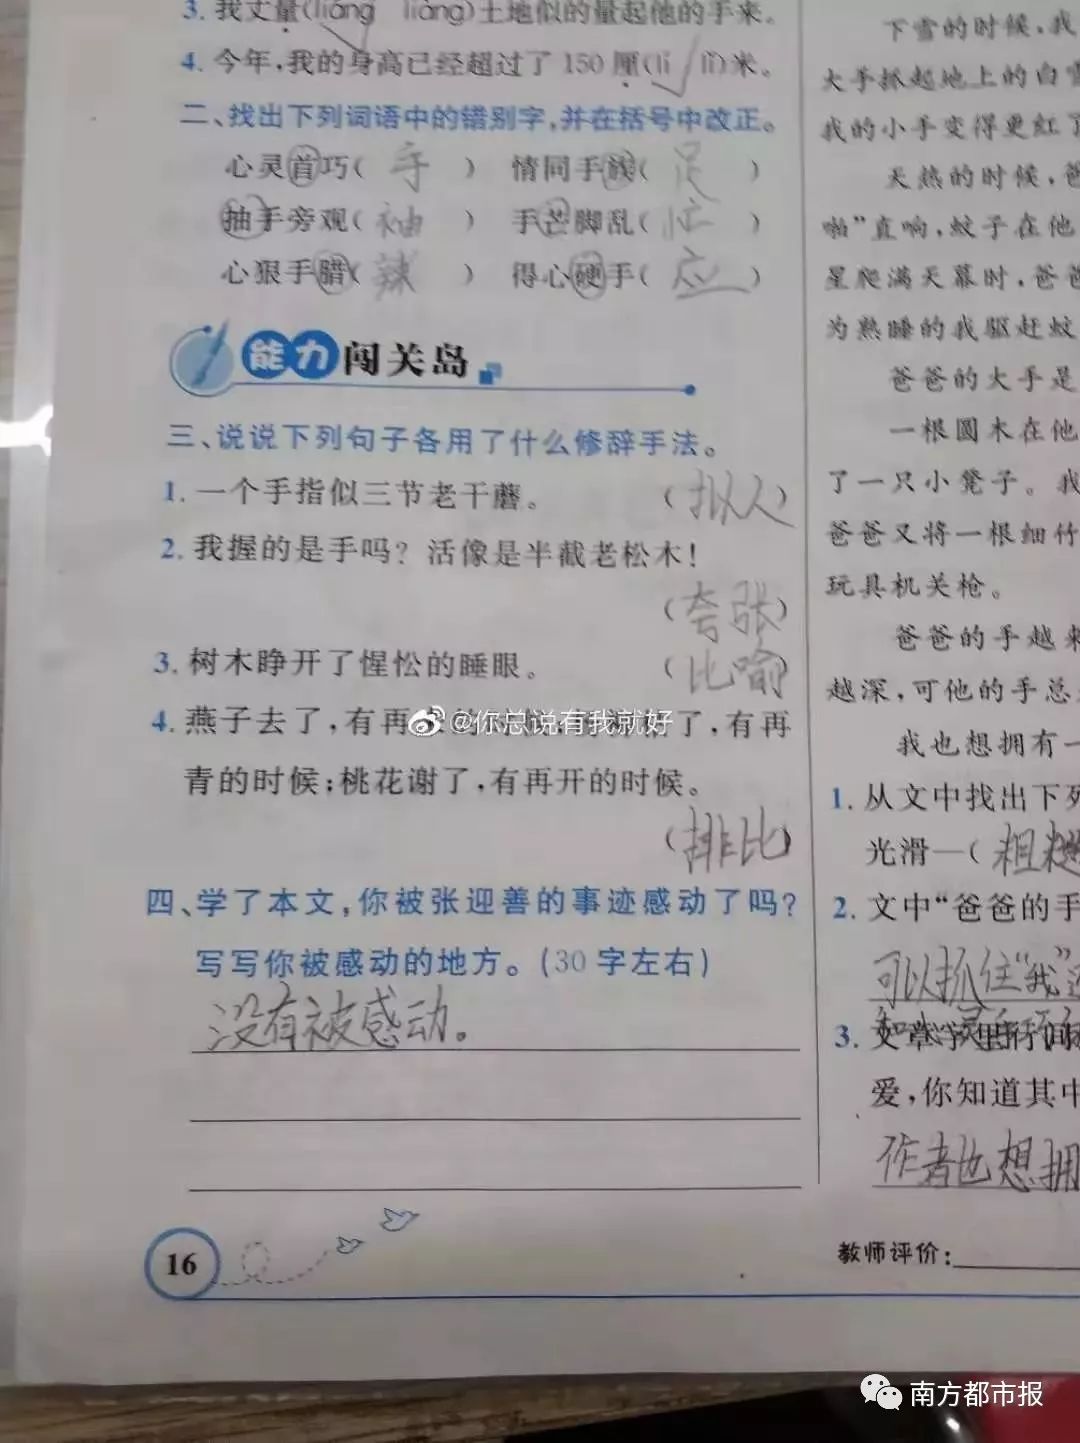 3.我丈量(liáng liàng)土地似的量起他的手来。
4.今年,我的身高已经超过了150厘(lí lǐ)米。
二、找出下列词语中的错别字,并在括号中改正。
心灵首巧( 手 ) 情同手族( 足 )
抽手旁观( 袖 ) 手芒脚乱( 忙 )
心狠手腊( 辣 ) 得心硬手( 应 )
能力闯关岛
三、说说下列句子各用了什么修辞手法。
1.一个手指似三节老干蘑。 (拟人)
2.我握的是手吗?活像是半截老松木!
(夸张)
3.树木睁开了惺忪的睡眼。 (比喻)
4.燕子去了,有再
了,有再
@你总说有我就好
青的时候;桃花谢了,有再开的时候。
(排比)
四、学了本文,你被张迎善的事迹感动了吗?
写写你被感动的地方。(30字左右)
没有被感动。
16
下雪的时候,我
大手抓起地上的白雪
我的小手变得更红了
天热的时候,爸
啪”直响,蚊子在他
星爬满天幕时,爸爸
为熟睡的我驱赶蚊
爸爸的大手是
一根圆木在他
了一只小凳子。我
爸爸又将一根细竹
玩具机关枪。
爸爸的手越来
越深,可他的手总
我也想拥有一
1.从文中找出下列
光滑—(粗糙
2.文中“爸爸的手
可以抓住“我”
3.文章字里行间
爱,你知道其中
作者也想拥
教师评价:
南方都市报